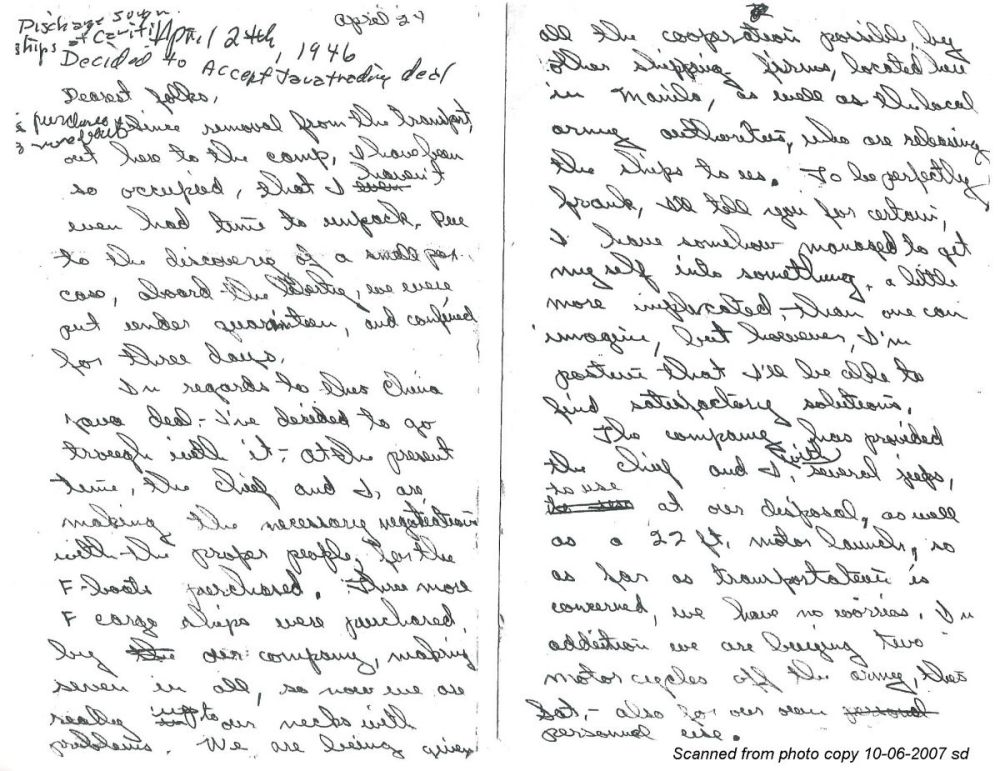 Discharge soon
ships at Cavite April 24th, 1946
April 24
Decided to Accept Java trading deal
Dearest folks,
purchase
Since removal from the transport,
out here to the camp, I have been
so occupied, that I haven't
even had time to unpack. Due
to the discovery of a small pox
case, aboard the Marine, we were
put under quarinteen, and confined
for three days.
In regards to this China
Java deal - I've decided to go
trough with it; - at the present
time, the Chief and I, are
making the necessary negotiations
with the proper people, for the
F-boats purchased. Three more
F cargo ships were purchased,
by the our company, making
seven in all, so now we are
really up to our necks with
problems. We are being given
all the cooperation possible, by
other shipping firms, located here
in Manila, as well as the local
army authorities, who are releasing
the ships to us. To be perfectly
frank, I'll tell you for certain,
I have somehow managed to get
myself into something, a little
more implicated - than one can
imagine, but however, I'm
positive that I'll be able to
find satisfactory solutions.
The company has provided
the Chief and I, with several jeeps,
to use
at our disposal, as well
as a 22 ft. motor launch, so
as far as transportation is
concerned, we have no worries. In
addition we are buying two
motor cycles off the army, this
Sat, - also for our own personal
personnel use.
Scanned from photo copy 10-06-2007 sd